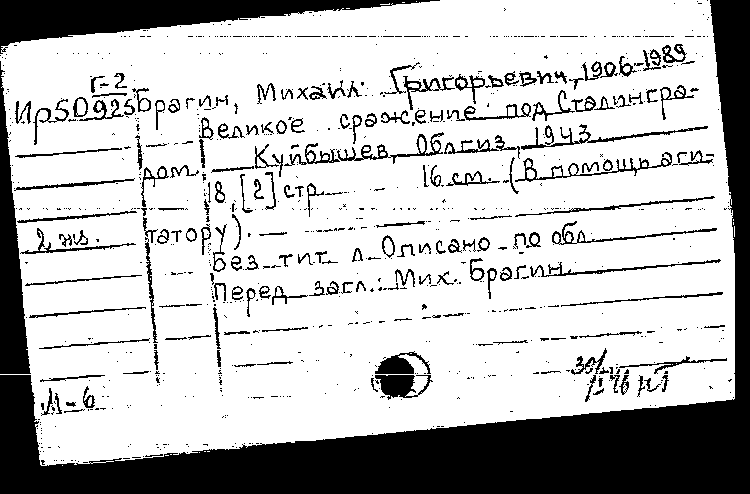 Г-2
Ир50925 Брагин, Михаил Григорьевич, 1906-1989
Великое сражение под Сталингра-
дом. Куйбышев, Облгиз, 1943
18, [2] стр. 16 см. (В помощь аги-
2 экз. татору). —
Без тит. л. Описано по обл.
Перед загл.: Мих. Брагин.
М-6